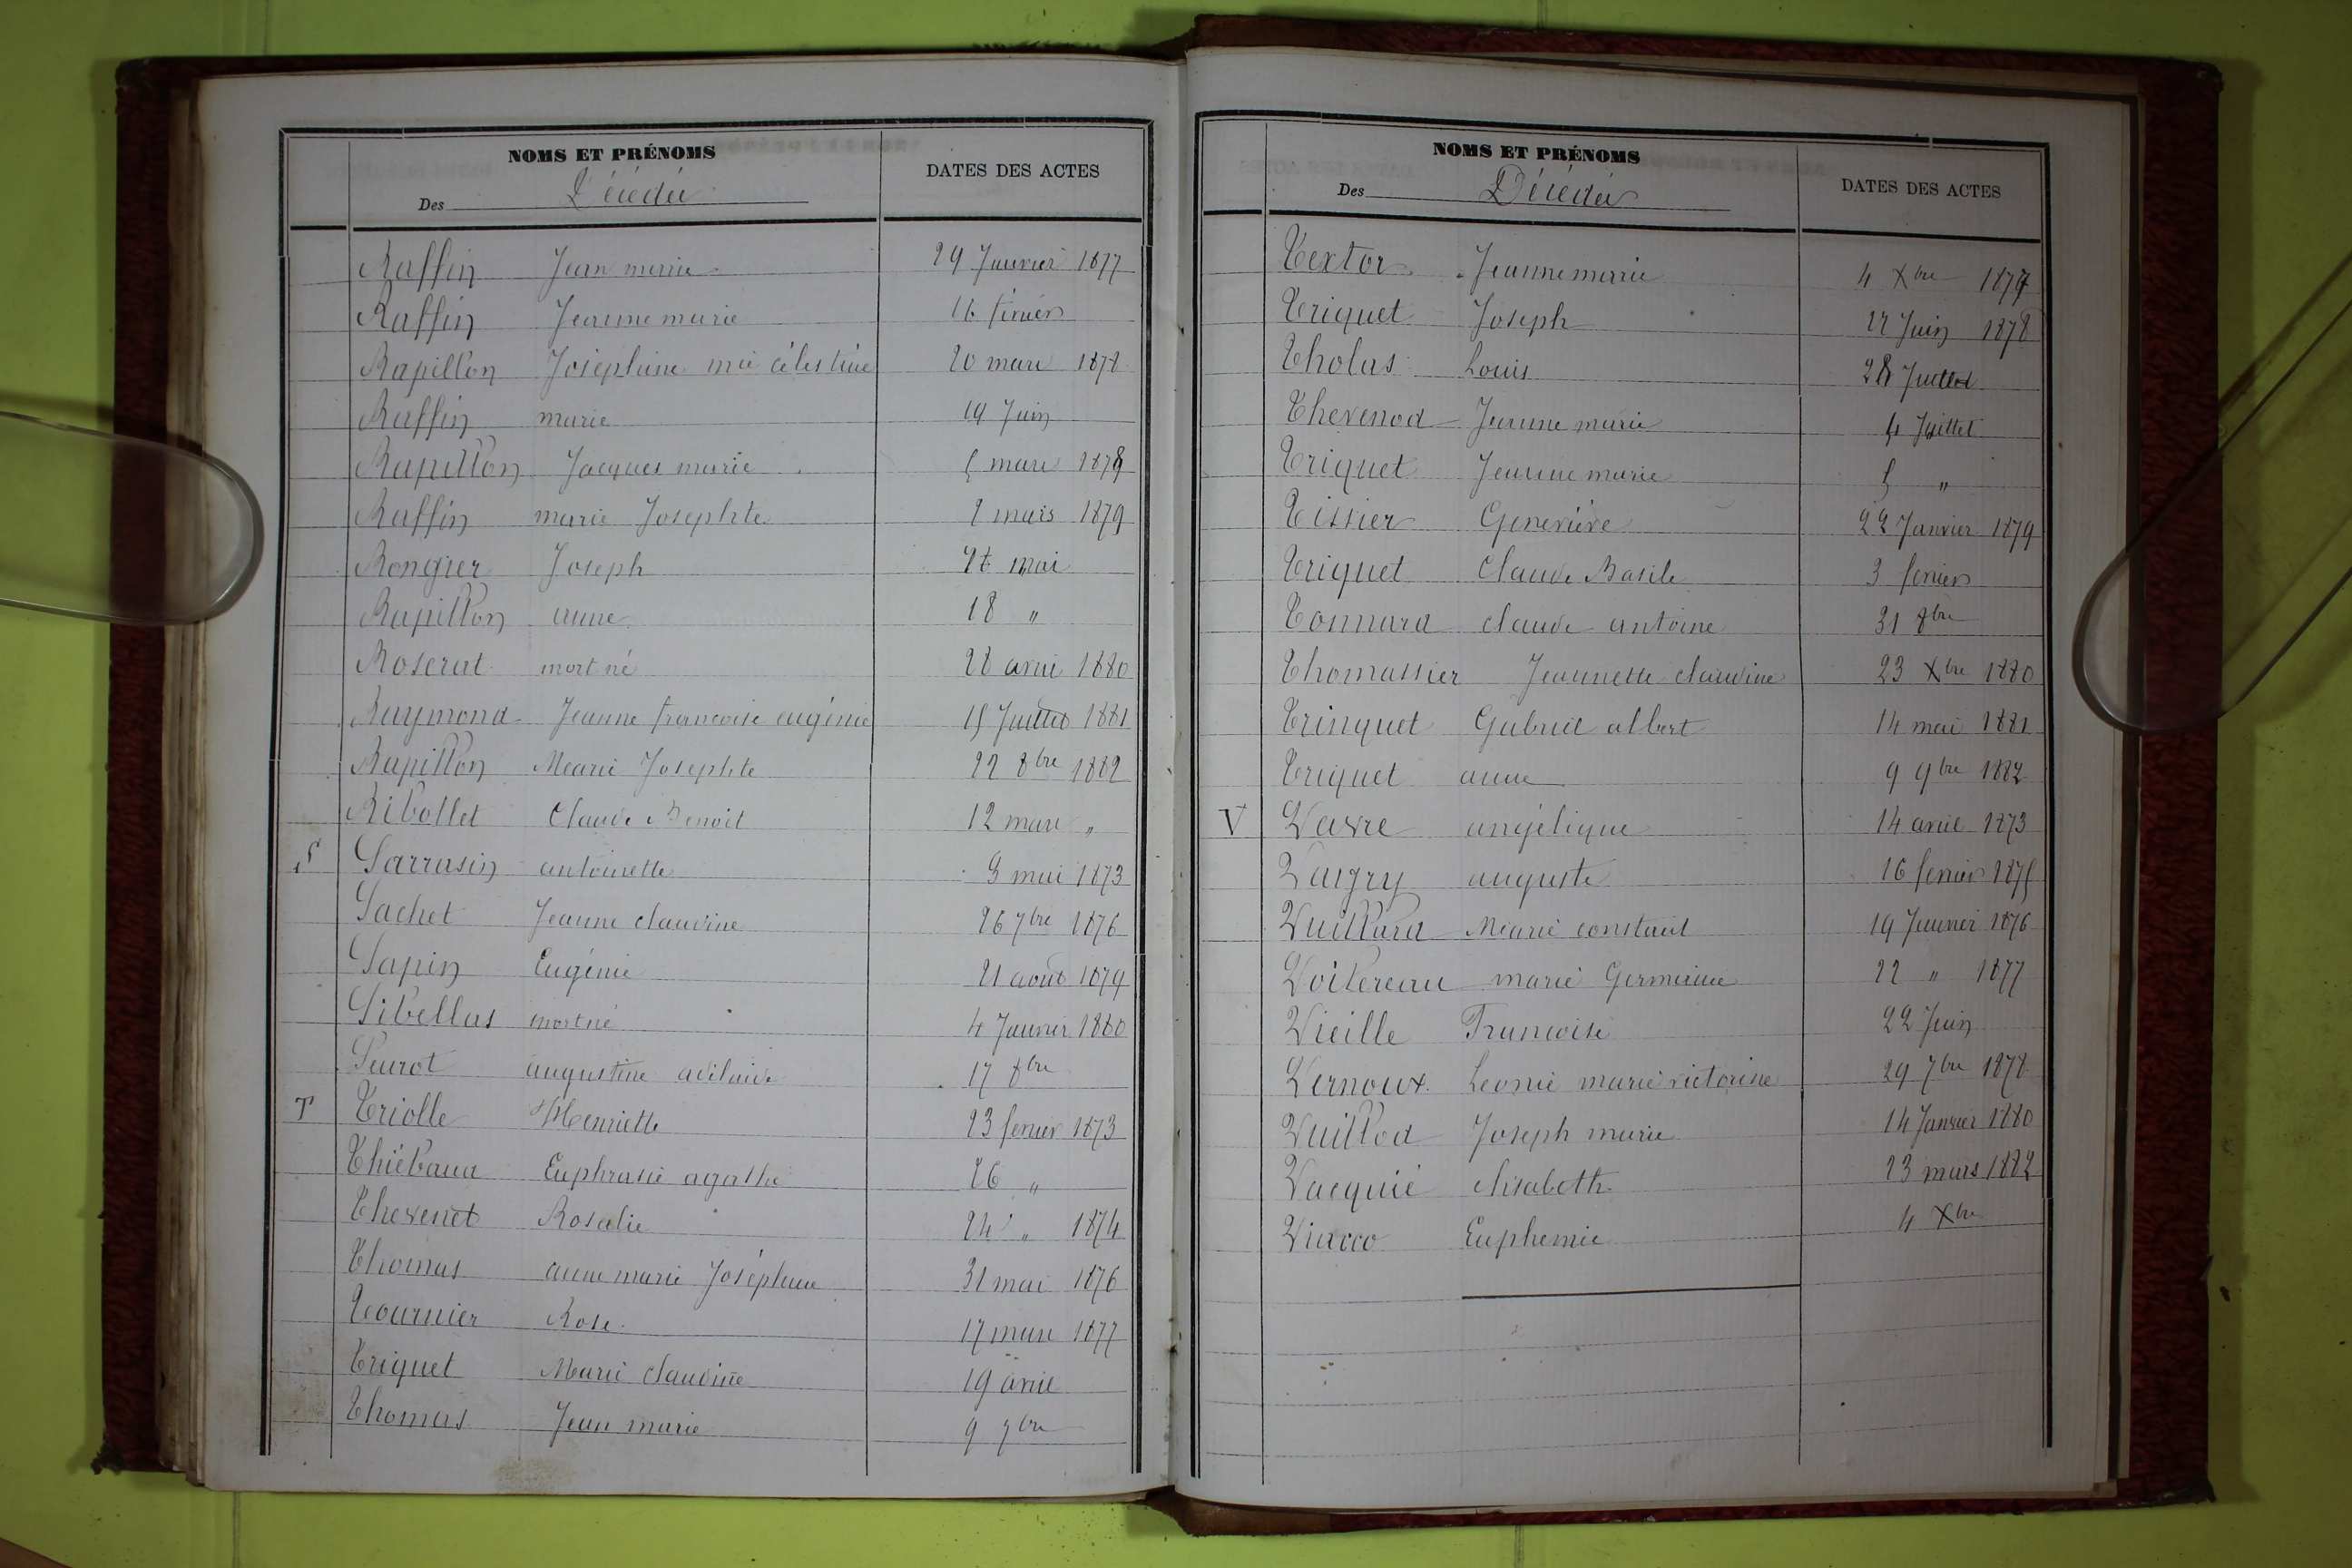 NOMS ET PRÉNOMS
Des Décédés
DATES DES ACTES
Raffin Jean marie 29 Janvier 1877
Raffin Jeanne marie 16 février
Rapillon Joséphine mie célestine 20 mars 1878
Raffin marie 19 Juin
Rapillon Jacques marie 5 mars 1878
Raffin marie Josephte 2 mars 1879
Rongier Joseph mai
Rapillon anne 18 "
Roserat mort né 28 avril 1880
Raymond Jeanne francoise eugénie 15 Juillet 1881
Rapillon Marie Josephte 22 8bre 1882
Ribollet Claude Benoit 12 mars "
S Sarrasin antoinette 3 mai 1873
Sachet Jeanne claudine 26 7bre 1876
Sapin Eugénie 21 août 1879
Sibellas mort né 4 Janvier 1880
Seurot augustine adelaide 17 8bre
T Triolle Henriette 23 fevrier 1873
Thiébaud Euphrasie agathe 26 "
Thevenet Rosalie 24 " 1874
Thomas anne marie Joséphine 31 mai 1876
Tournier Rose 17 mars 1877
Triquet Marie claudine 19 avril
Thomas Jean marie 9 7bre
NOMS ET PRÉNOMS
Des Décédés
DATES DES ACTES
Textor Jeanne marie 4 Xbre 1877
Triquet Joseph Juin 1878
Tholas Louis 28 Juillet
Thevenod Jeanne marie 4 Juillet
Triquet Jeanne marie 5 "
Tissier Geneviève 22 Janvier 1879
Triquet Claude Basile 3 fevrier
Tonnard claude antoine 31 8bre
Thomassier Jeannette claudine 23 Xbre 1880
Trinquet Gabriel albert 14 mai 1881
Triquet anne 9 9bre 1882
V Vavre angélique 14 avril 1873
Vaugry auguste 16 fevrier 1875
Vuillard Marie constant 19 Janvier 1876
Voitereau marie Germaine 22 " 1877
Vieille Francoise 22 Juin
Vernoux Leonie marie victorine 29 7bre 1878
Vuillod Joseph marie 14 Janvier 1880
Vacquié elisabeth 23 mars 1882
Viacco Euphemie 4 Xbre